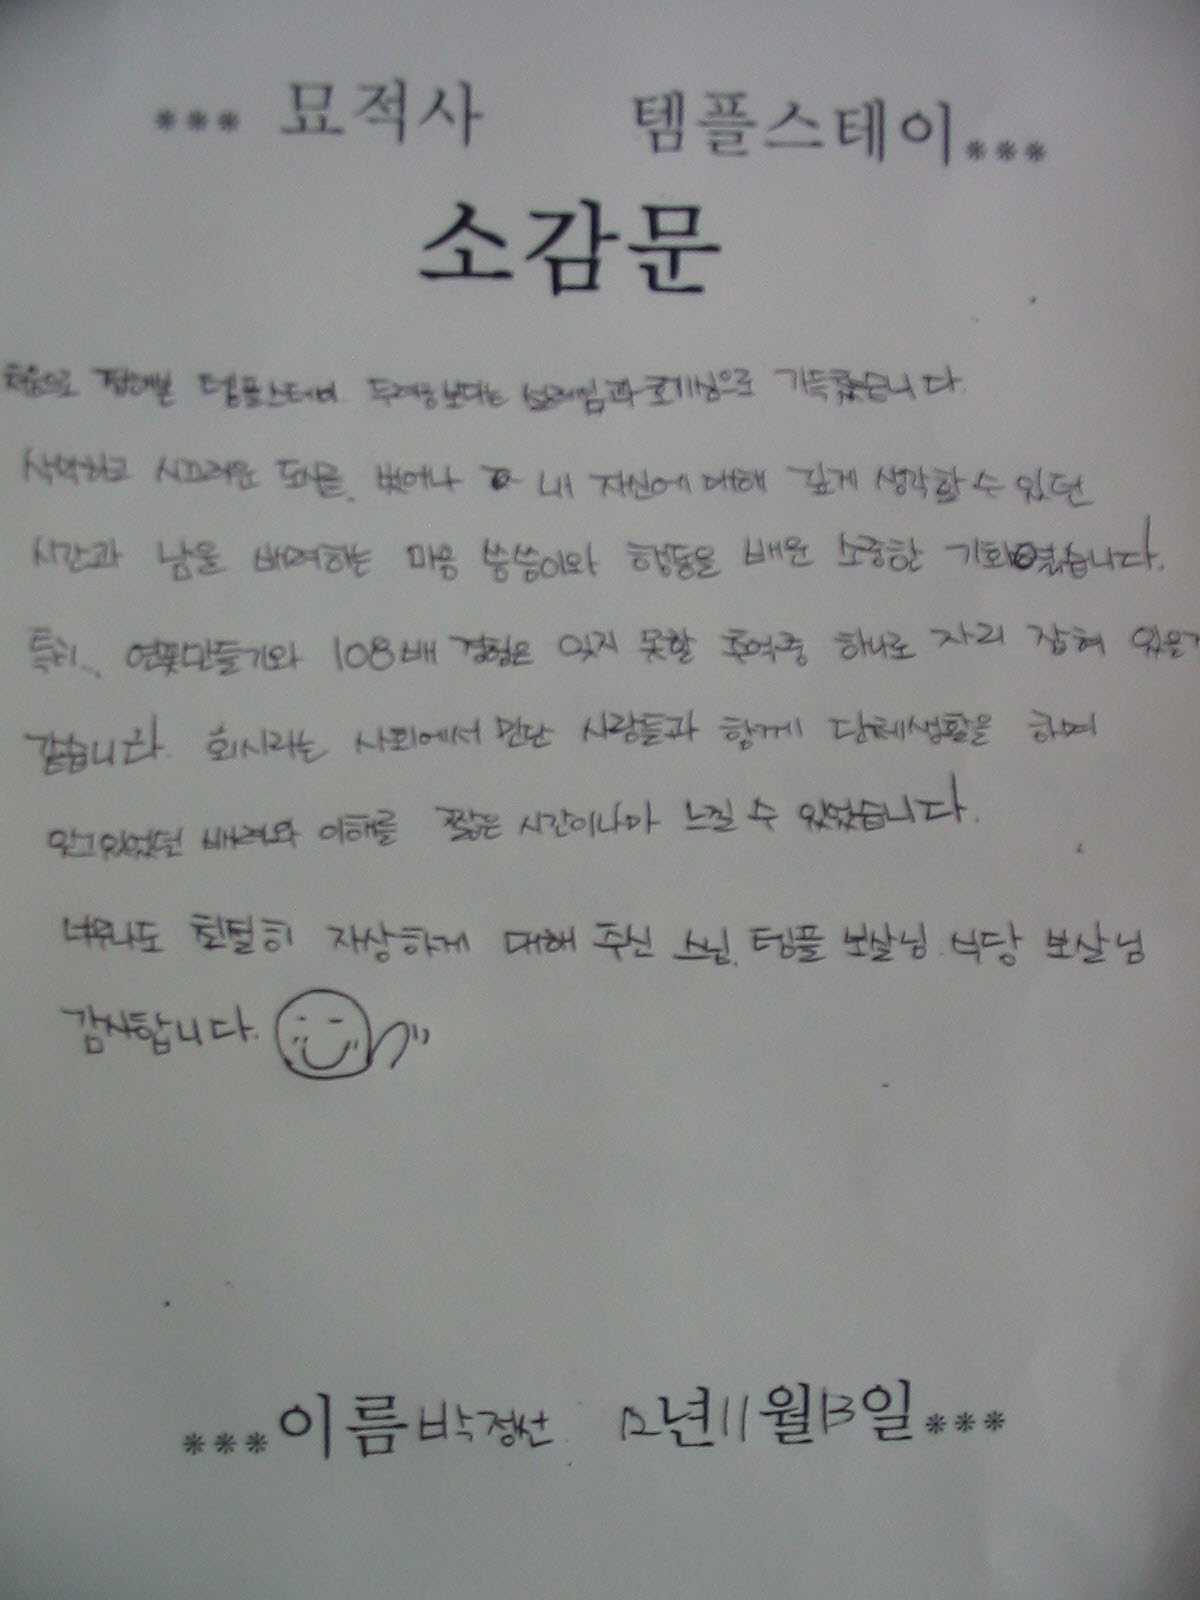 *** 묘적사 템플스테이***
소감문
처음으로 접해본 템플스테이. 두려움보다는 설레임과 호기심으로 가득찼습니다.
삭막하고 시끄러운 도시를 벗어나 내 자신에 대해 깊게 생각할 수 있던
시간과 남을 배려하는 마음 씀씀이와 행동을 배운 소중한 기회였습니다.
특히, 연꽃만들기와 108배 경험은 잊지 못할 추억중 하나로 자리 잡혀 있을거
같습니다. 회사라는 사회에서 만난 사람들과 함께 단체생활을 하며
잊고있었던 배려와 이해를 짧은 시간이나마 느낄 수 있었습니다.
너무나도 친절히 자상하게 대해 주신 스님, 템플 보살님, 식당 보살님
감사합니다.
***이름 박정선 12년 11월 13일***